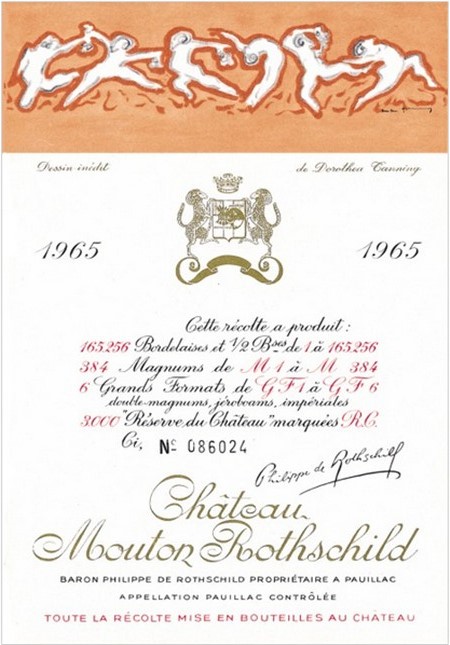 Dessin inédit de Dorothea Tanning
1965 1965
Cette récolte a produit :
165.256 Bordelaises et 1/2 Bses de 1 à 165256
384 Magnums de M 1 à M 384
6 Grands Formats de G F 1 à G F 6
double-magnums, jéroboams, impériales
3.000 "Réserve du Château" marquées R.C.
Ci, No 086024
Philippe de Rothschild
Château
Mouton Rothschild
BARON PHILIPPE DE ROTHSCHILD PROPRIÉTAIRE A PAUILLAC
APPELLATION PAUILLAC CONTRÔLÉE
TOUTE LA RÉCOLTE MISE EN BOUTEILLES AU CHÂTEAU